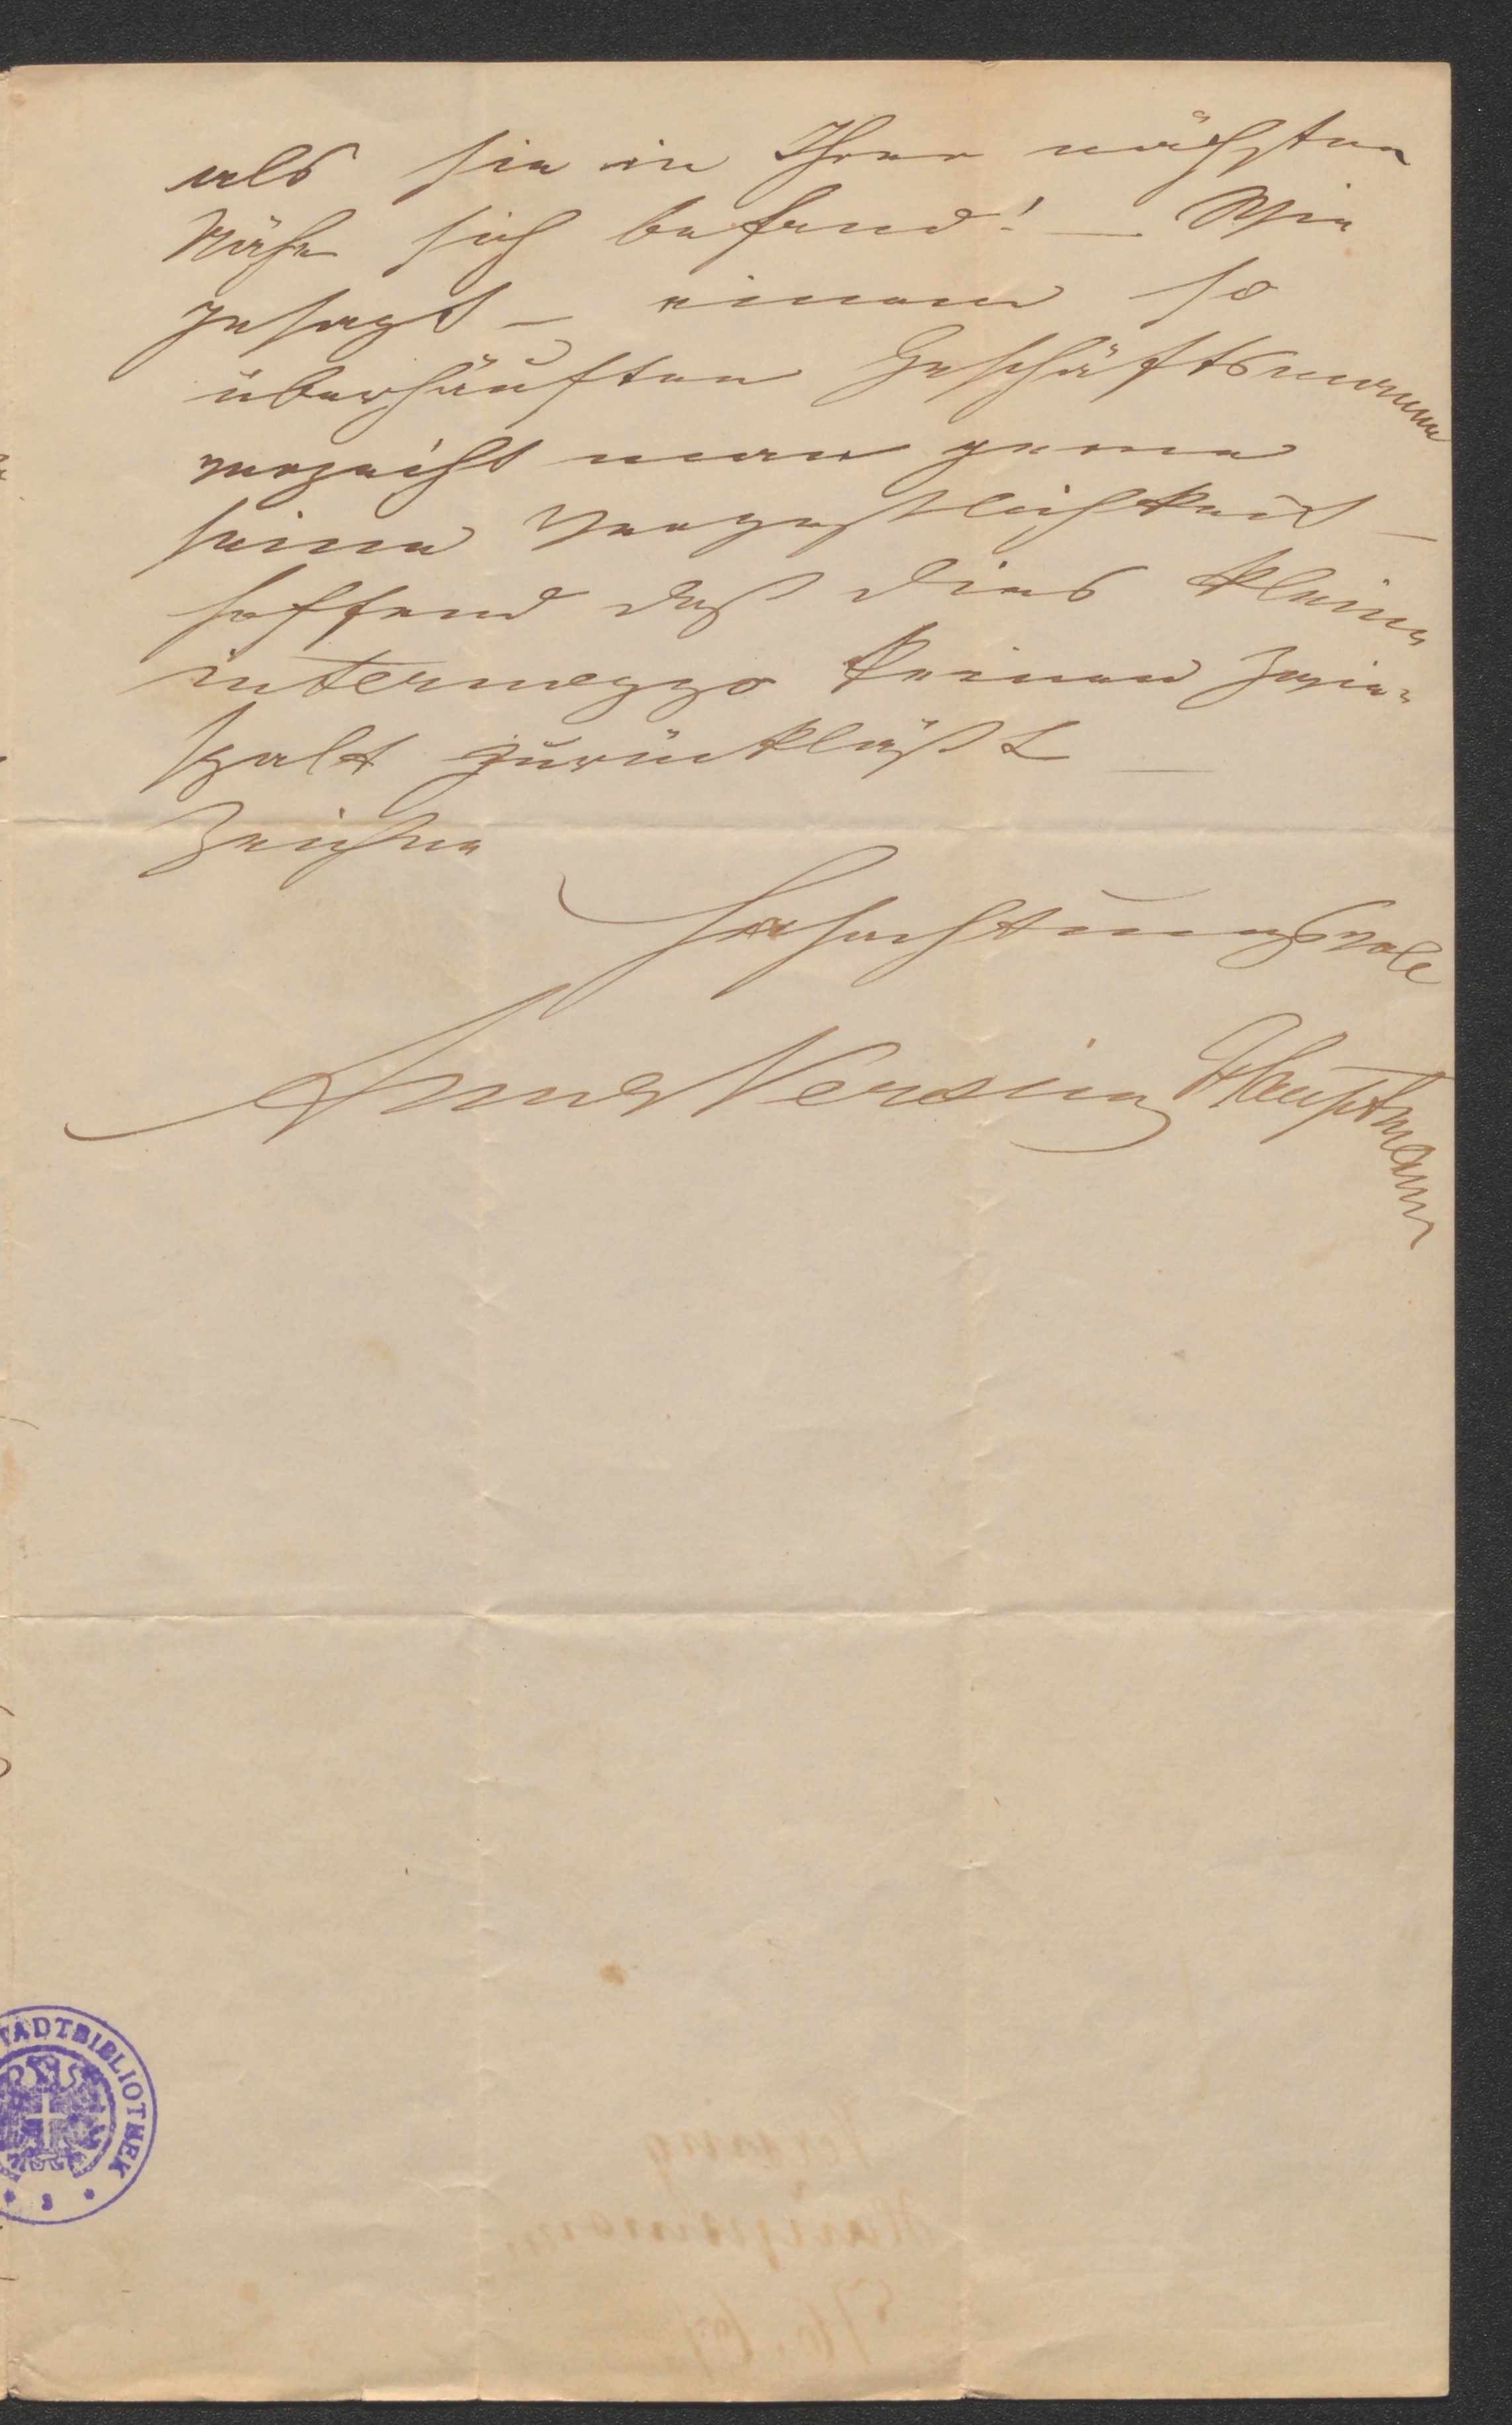 als sie in Ihrer nächsten
Nähe sich befand! — Wie
gesagt — einem so
überhäuften Geschäftsmanne
verzeiht man gerne
seine Vergeßlichkeit —
hoffend daß dies kleine
intermezzo keinen Zwie-
spalt zurückläßt —
Zeichne
Hochachtungsvoll
Anna Versing Hauptmann
STADTBIBLIOTHEK